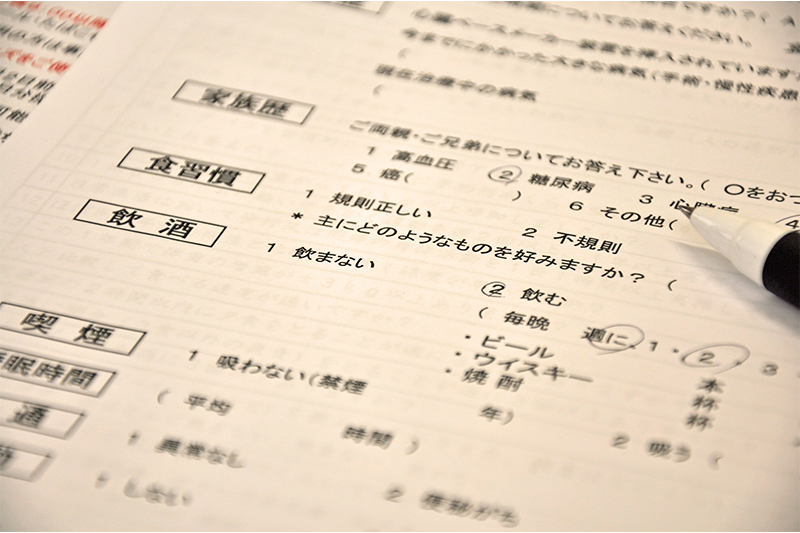 心臓ペースメーカー装置を挿入されています
今までにかかった大きな病気(手術・慢性疾患
現在治療中の病気
(
家族歴
ご両親・ご兄弟についてお答え下さい。( ○をおつ
1 高血圧 ② 糖尿病 3 心臓病 4
5 癌( ) 6 その他(
食習慣
1 規則正しい 2 不規則
* 主にどのようなものを好みますか? (
飲酒
1 飲まない ② 飲む
( 毎晩 週に、1・2・3
・ビール 本
・ウイスキー 杯
・焼酎 杯
喫煙
1 吸わない(禁煙 年) 2 吸う (
眠時間
( 平均 時間 )
通
1 異常なし 2 便秘がち
1 しない